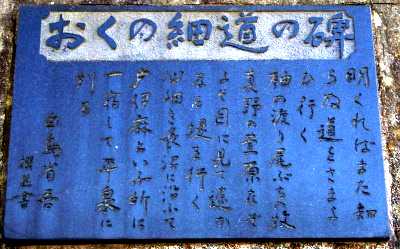 おくの細道の碑
明くればまた知
らぬ道まよ
ひ行く
袖の渡り尾ぶちの牧
真野の萱原など
よそ目に見て遥か
なる堤を行く
心細き長沼に沿ふて
戸伊麻といふ所に
一宿して平泉に
到る